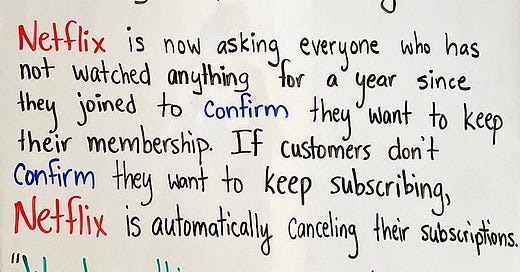 Netflix is now asking everyone who has
not watched anything for a year since
they joined to Confirm they want to keep
their membership. If customers don't
Confirm they want to keep subscribing,
Netflix is automatically canceling their subscriptions.